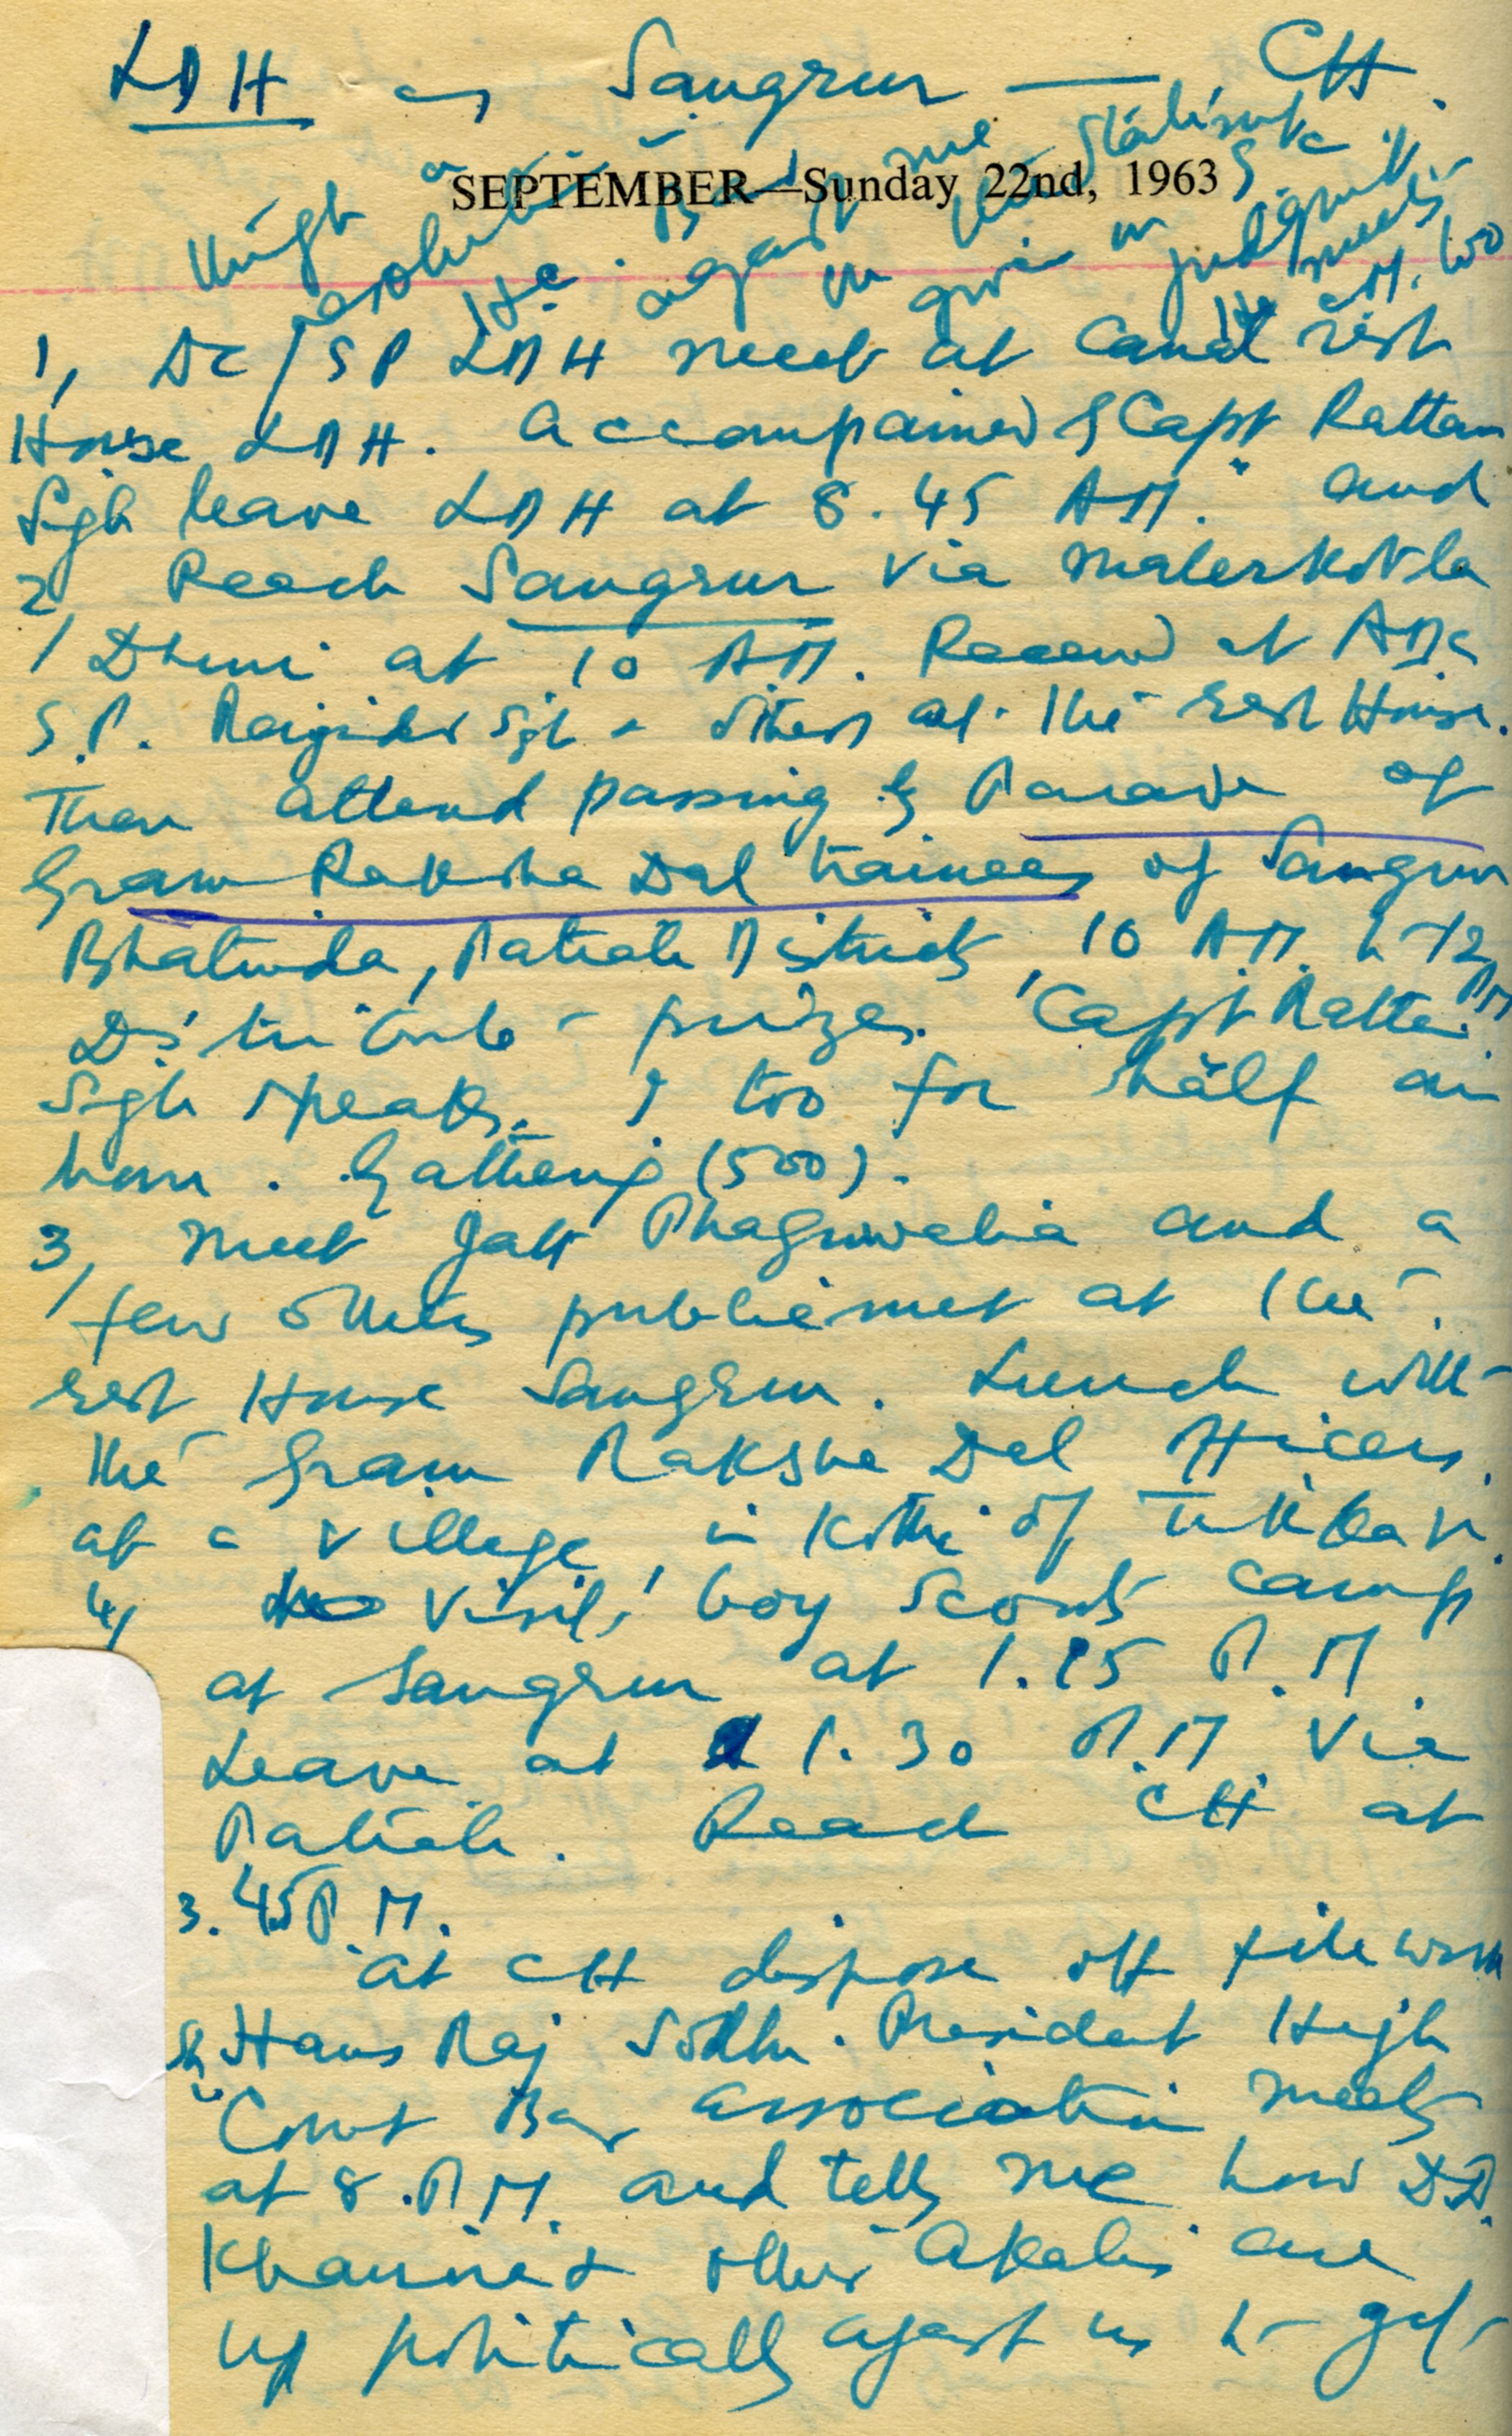 LDH — Sangrur — CH.
SEPTEMBER—Sunday 22nd, 1963
1, DC/SP LDH meet at Canal rest
House LDH. Accompained Capt Rattan
Sgh leave LDH at 8.45 AM. and
2, Reach Sangrur via Malerkotla
/ Dhuri at 10 AM. Received at
S.P. Sgh & others at the rest House.
Then attend passing Parade of
Gram Raksha Dal trainees of Sangrur
Bhatinda, Patiala Districts, 10 A.M. to 12
Distribute prizes. Capt Rattan
Sgh speaks. I too for half an
hour. Gathering (500).
3, Meet Jatt Phaguwalia and a
few others public met at the
rest House Sangrur. Lunch with
the Gram Raksha Dal officers
at a village, in Kothi of
4, Visit boy Scouts Camp
at Sangrur at 1.15 P.M.
Leave at 1.30 P.M. Via
Patiala. Reach CH at
3.45 P.M.
At CH dispose off file work
Sh Hans Raj Sodhi. President High
Court Bar association meets
at 8.P.M. and tells me how DD
Khanna & other Akalis are
up politically against us to get
a
resolution Bar me
He. against
in given judgment
He meets